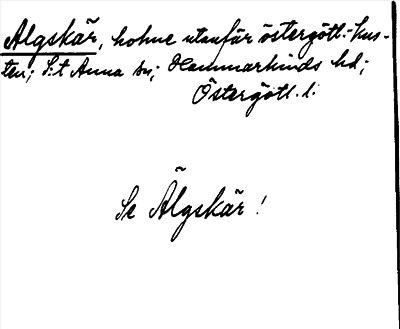 Älgskär, holme utanför östergötl.-kus-
ten; S:t Anna sn; Hammarkinds hd;
Östergötl. l.
Se Älgskär!